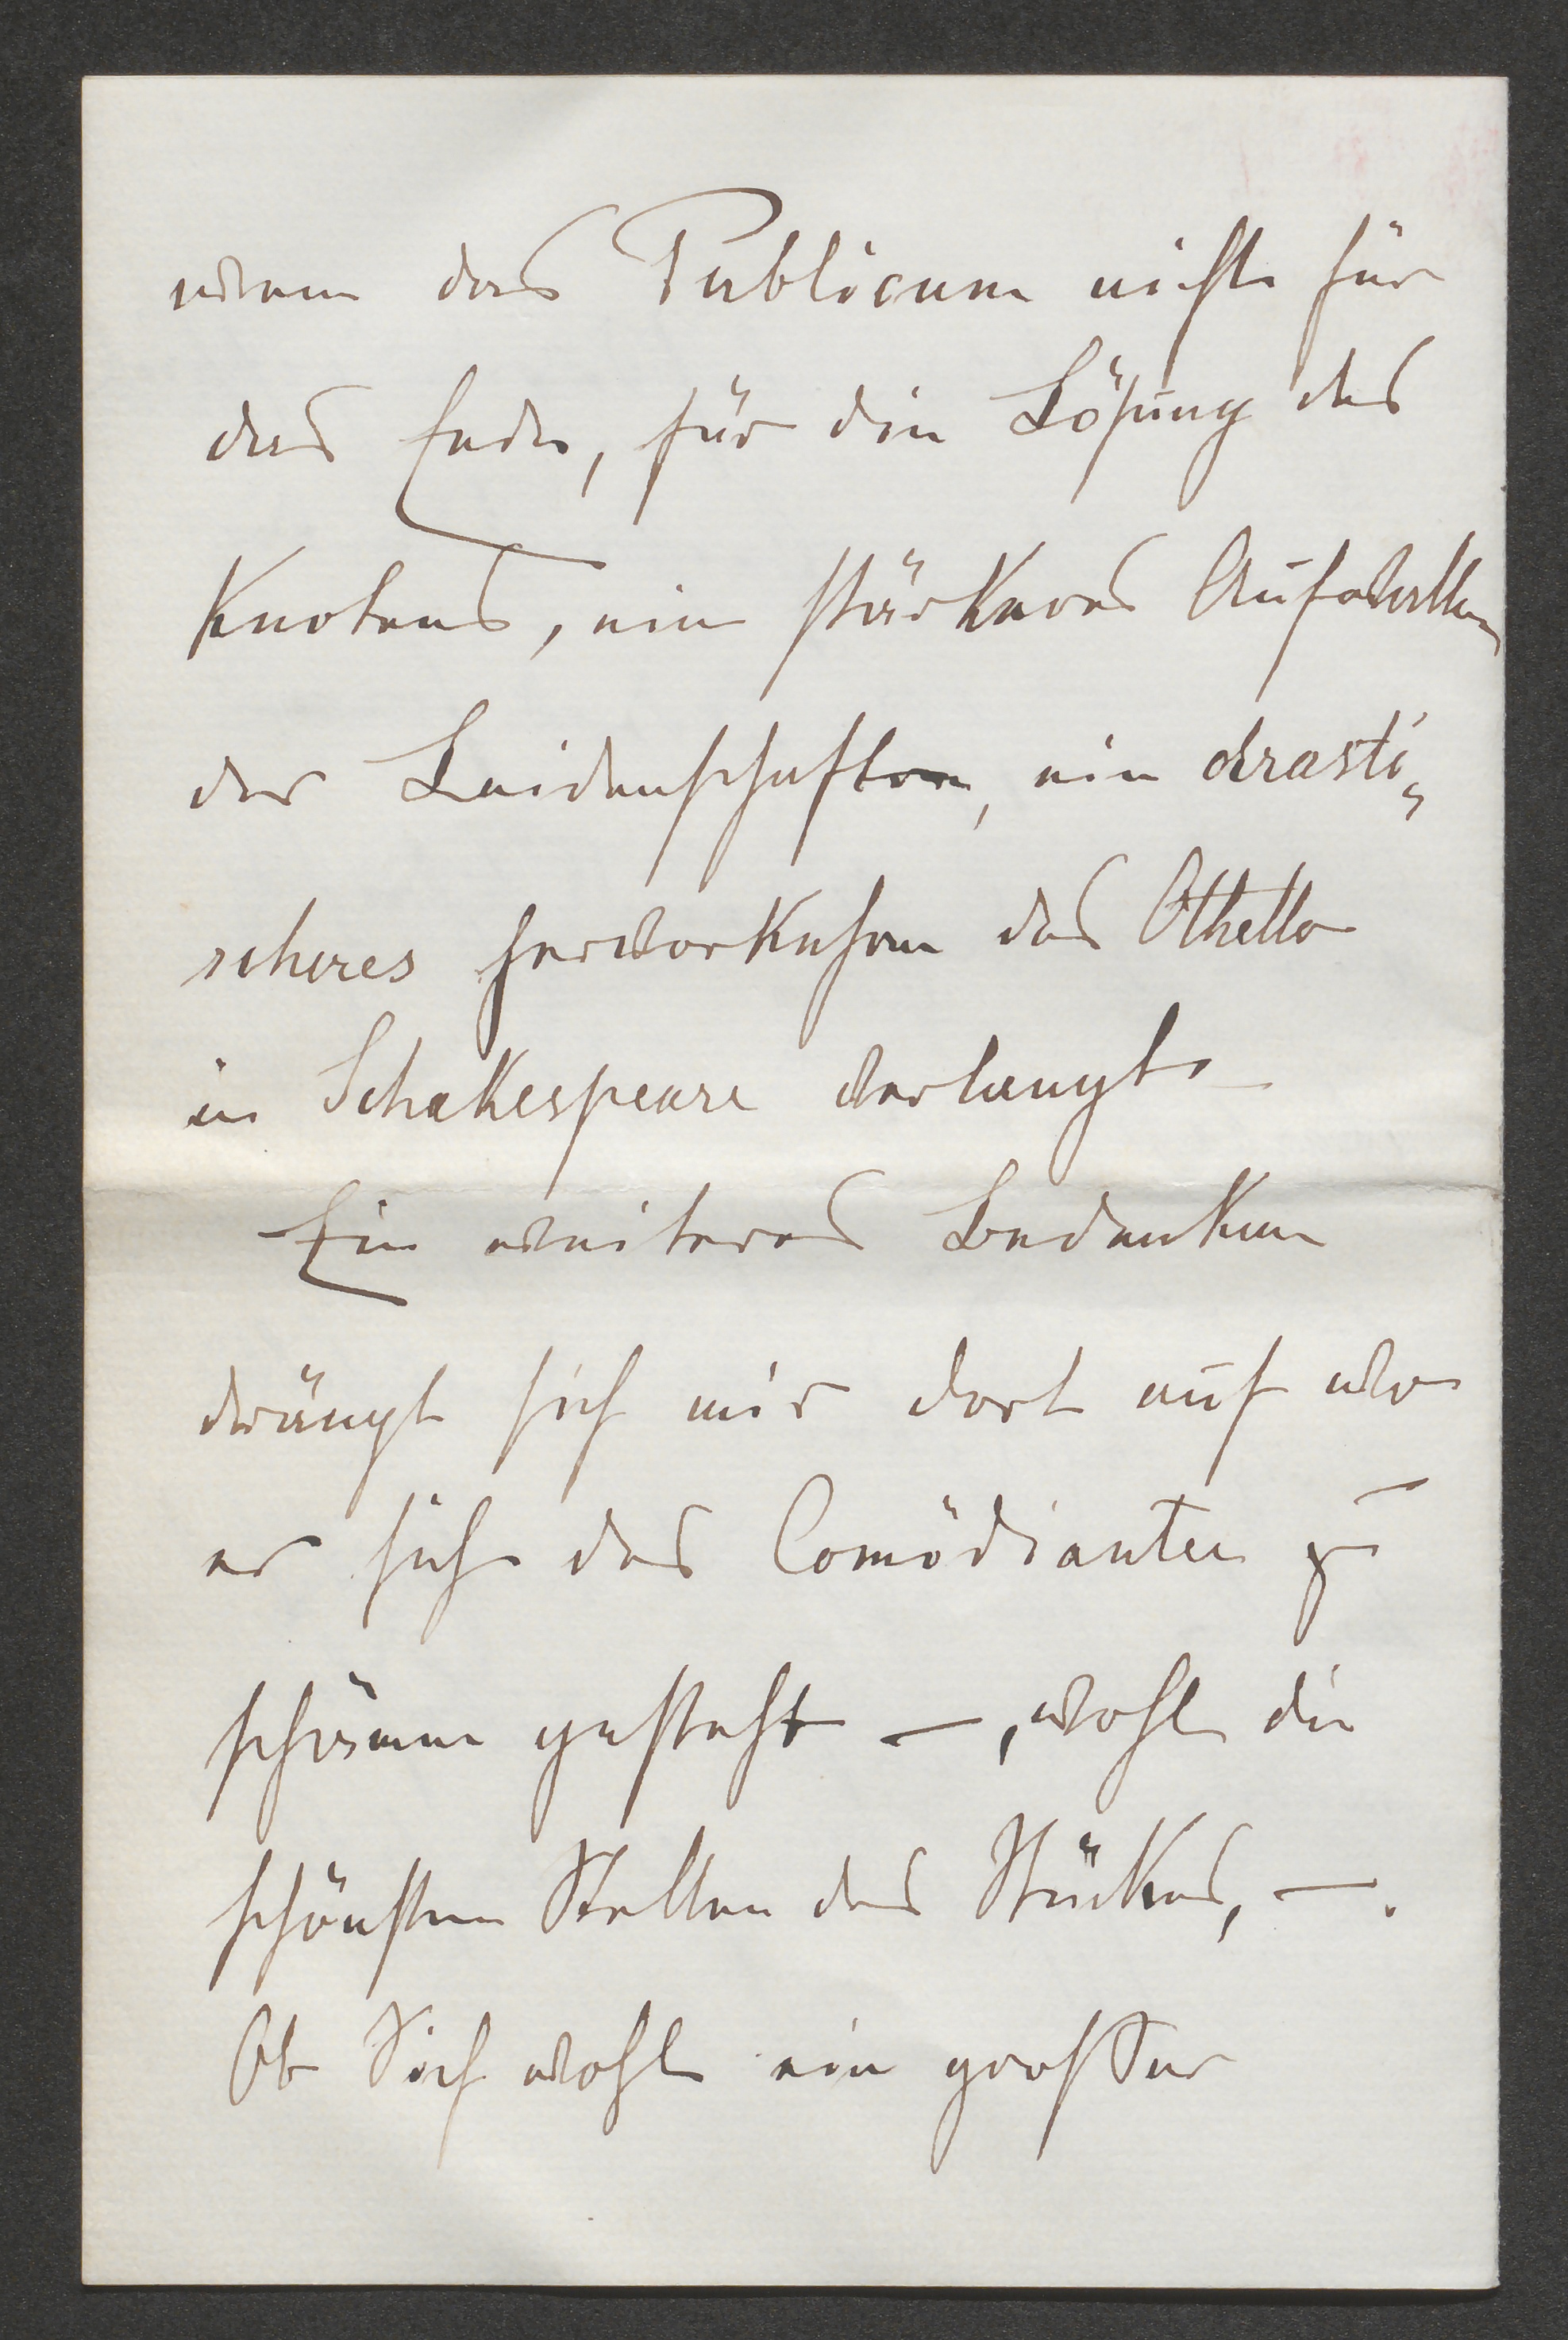 wenn das Publicum nicht für
das Ende, für die Lösung des
Knotens, ein stärkeres Aufwallen
der Leidenschaften, ein drasti„
scheres hervorkehren des Othello
in Schakespeare verlangt
Ein weiteres Bedenken
drängt sich mir dort auf wo
er sich des Comödianten zu
schämen gesteht –, wohl die
schönsten Stellen des Stückes, –.
Ob Sich wohl ein grosser